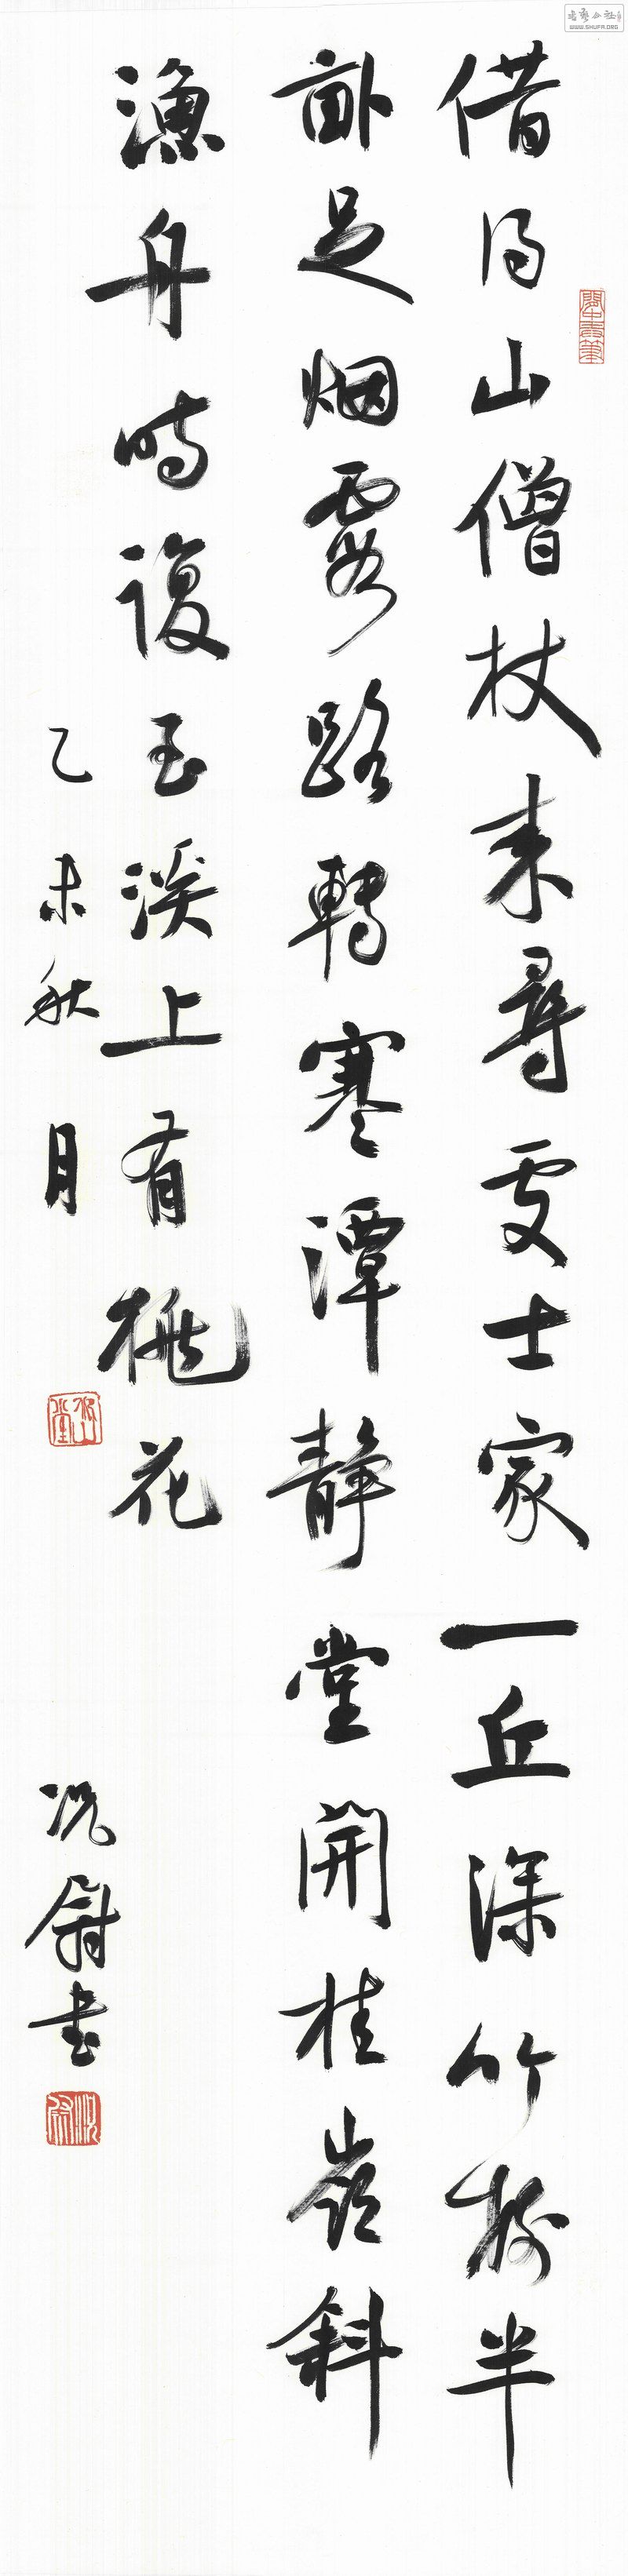 借得山僧杖来尋處士家一丘深竹樹半
畝足烟霞路轉寒潭靜堂開桂嶺斜
漁舟時復至溪上有桃花
乙未秋月 况尉书
WWW.SHUFA.ORG